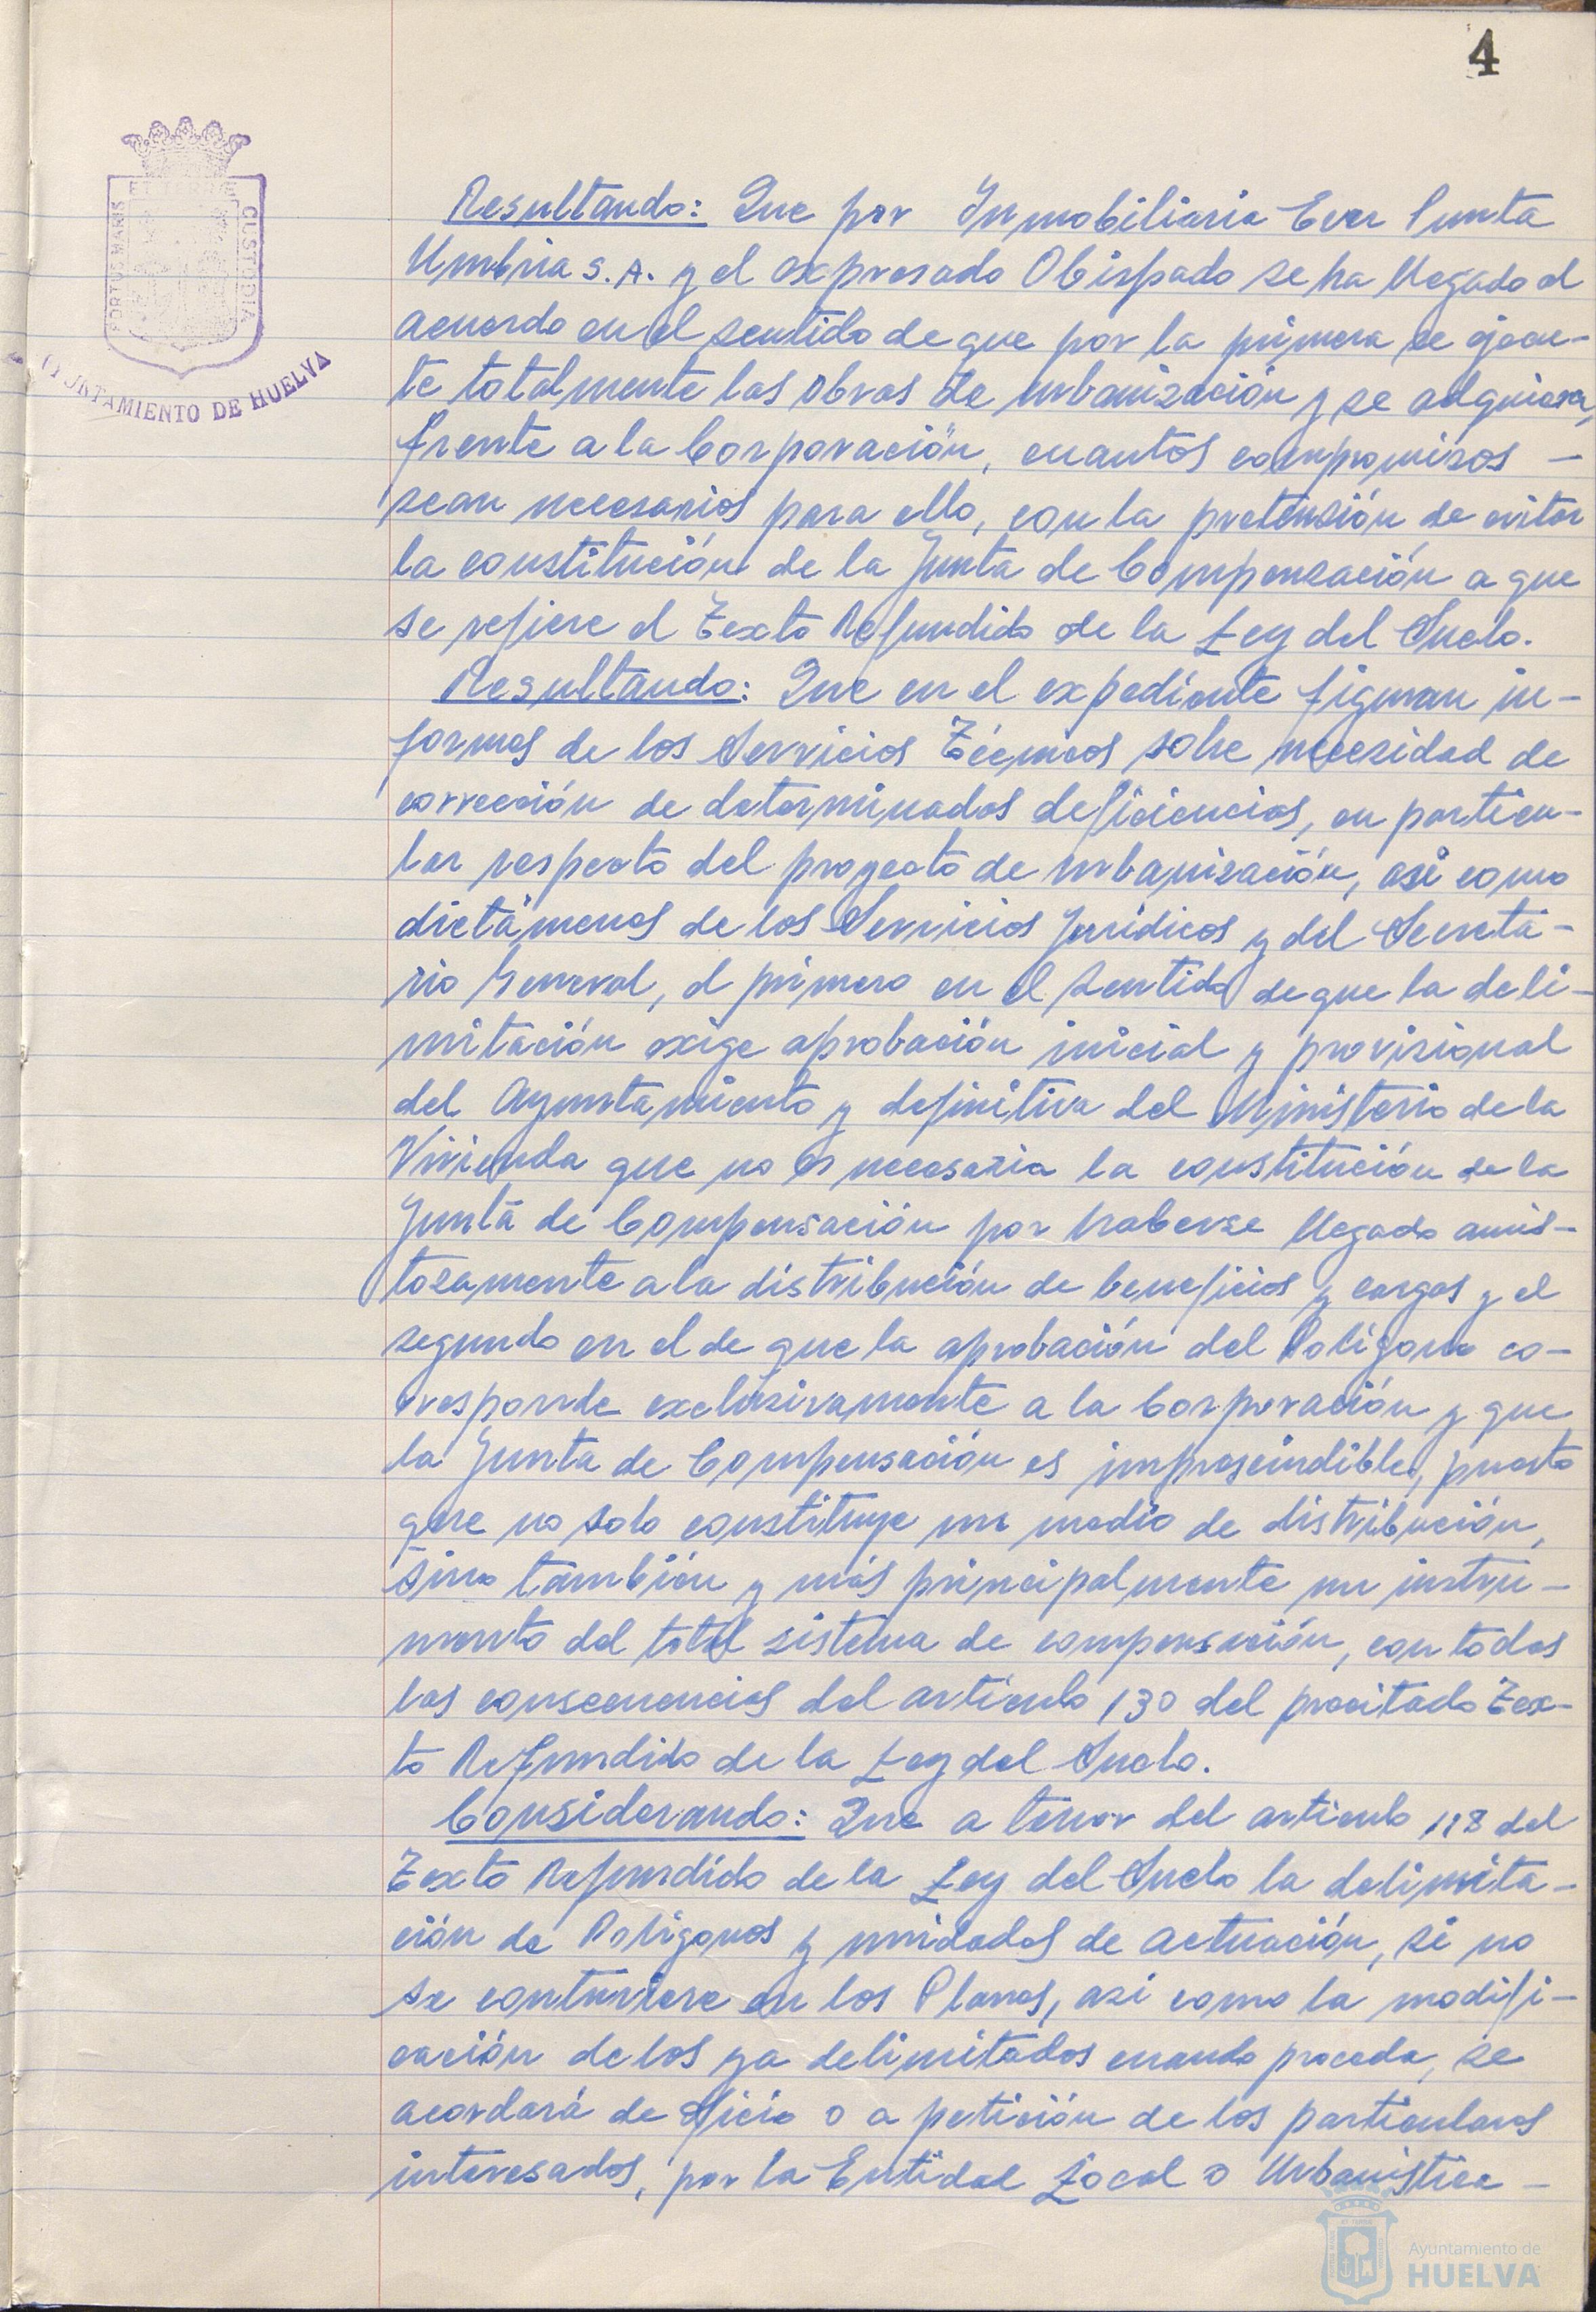 4
ET TERRÆ
PORTUS MARIS
CUSTODIA
AYUNTAMIENTO DE HUELVA
Resultando: Que por Inmobiliaria Ever Punta
Umbria S.A. y el expresado Obispado se ha llegado al
acuerdo en el sentido de que por la primera se ejecu-
te totalmente las obras de urbanización y se adquiera,
frente a la Corporación, cuantos compromisos -
sean necesarios para ello, con la pretensión de evitar
la constitución de la Junta de Compensación a que
se refiere el Texto Refundido de la Ley del Suelo.
Resultando: Que en el expediente figuran in-
formes de los Servicios Técnicos sobre necesidad de
corrección de determinados deficiencias, en particu-
lar respecto del proyecto de urbanización, asi como
dictámenes de los Servicios Jurídicos y del Secreta-
rio General, el primero en el sentido de que la deli-
mitación exige aprobación inicial y provisional
del Ayuntamiento y definitiva del Ministerio de la
Vivienda que no es necesaria la constitución de la
Junta de Compensación por haberse llegado amis-
tosamente a la distribución de beneficios y cargas y el
segundo en el de que la aprobación del Polígono co-
rresponde exclusivamente a la Corporación y que
la Junta de Compensación es imprescindible, puesto
que no solo constituye un medio de distribución,
sino también y más principalmente un instru-
mento del total sistema de compensación, con todas
las consecuencias del artículo 130 del precitado Tex-
to Refundido de la Ley del Suelo.
Considerando: Que a tenor del articulo 118 del
Texto Refundido de la Ley del Suelo la delimita-
ción de Polígonos y unidades de actuación, si no
se contuviere en los Planes, asi como la modifi-
cación de los ya delimitados cuando proceda, se
acordará de oficio o a petición de los particulares
interesados, por la Entidad Local o Urbanística -
Ayuntamiento de
HUELVA